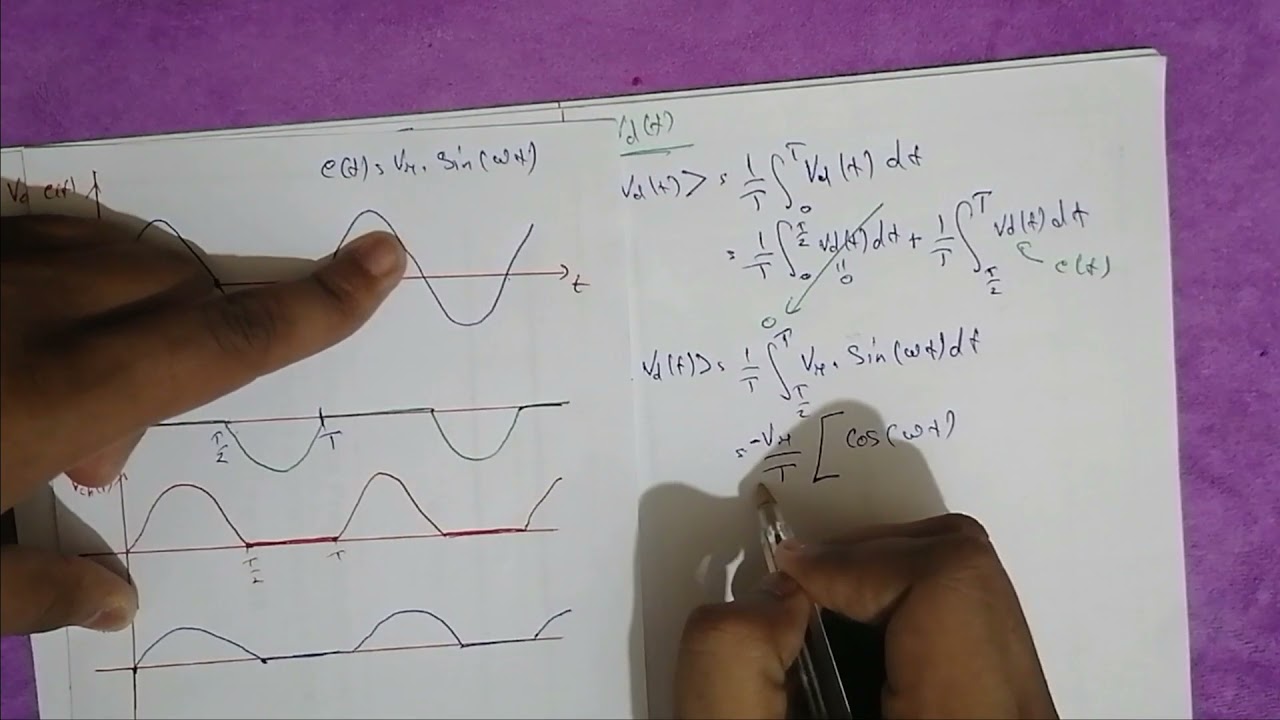 e(t) = V_M . Sin(ωt)
Vd e(t)
t
T/2 T
Vch(t)
T/2 T
Vd(t)
Vd(t)> = 1/T ∫_0^T Vd(t) dt
= 1/T ∫_0^{T/2} Vd(t)dt + 1/T ∫_{T/2}^T Vd(t)dt
0 e(t)
0
Vd(t)> = 1/T ∫_{T/2}^T V_M . Sin(ωt)dt
= -V_M/T [ cos(ωt)